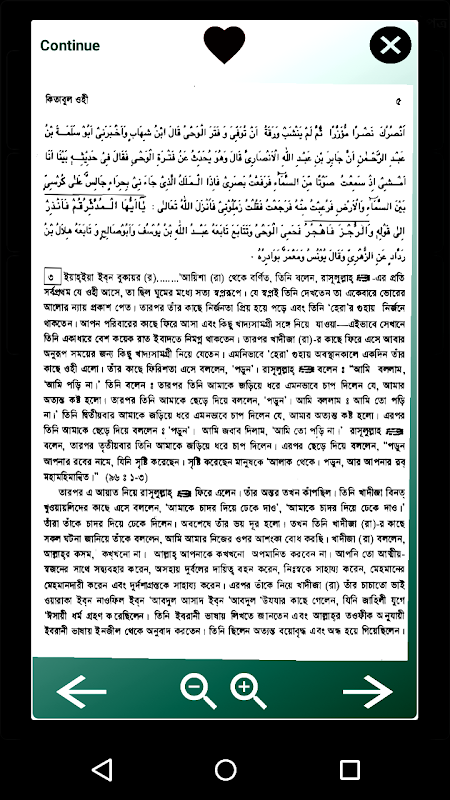 Continue
কিতাবুল ওহী ৫
أَنْصُرْكَ نَصْرًا مُؤَزَّرًا ثُمَّ لَمْ يَنْشَبْ وَرَقَةُ أَنْ تُوُفِّيَ وَفَتَرَ الْوَحْيُ قَالَ ابْنُ شِهَابٍ وَأَخْبَرَنِي أَبُو سَلَمَةَ بْنُ
عَبْدِ الرَّحْمٰنِ أَنَّ جَابِرَ بْنَ عَبْدِ اللّٰهِ الْأَنْصَارِيَّ قَالَ وَهُوَ يُحَدِّثُ عَنْ فَتْرَةِ الْوَحْيِ فَقَالَ فِي حَدِيْثِهِ بَيْنَا أَنَا
أَمْشِيْ إِذْ سَمِعْتُ صَوْتًا مِنَ السَّمَاءِ فَرَفَعْتُ بَصَرِيْ فَإِذَا الْمَلَكُ الَّذِيْ جَاءَ نِيْ بِحِرَاءٍ جَالِسٌ عَلٰى كُرْسِيٍّ
بَيْنَ السَّمَاءِ وَالْأَرْضِ فَرُعِبْتُ مِنْهُ فَرَجَعْتُ فَقُلْتُ زَمِّلُوْنِيْ فَأَنْزَلَ اللّٰهُ تَعَالٰى : يَا أَيُّهَا الْمُدَّثِّرُ قُمْ فَأَنْذِرْ
إِلٰى قَوْلِهِ وَالرُّجْزَ فَاهْجُرْ فَحَمِيَ الْوَحْيُ وَتَتَابَعَ تَابَعَهُ عَبْدُ اللّٰهِ بْنُ يُوْسُفَ وَأَبُوْ صَالِحٍ وَ تَابَعَهُ هِلَالُ بْنُ
رَدَّادٍ عَنِ الزُّهْرِيِّ وَقَالَ يُوْنُسُ وَمَعْمَرٌ بَوَادِرُهُ .
৩ ইয়াহ্ইয়া ইব্‌ন বুকায়র (র).......'আয়িশা (রা) থেকে বর্ণিত, তিনি বলেন, রাসূলুল্লাহ্ ﷺ -এর প্রতি
সর্বপ্রথম যে ওহী আসে, তা ছিল ঘুমের মধ্যে সত্য স্বপ্নরূপে। যে স্বপ্নই তিনি দেখতেন তা একেবারে ভোরের
আলোর ন্যায় প্রকাশ পেত। তারপর তাঁর কাছে নির্জনতা প্রিয় হয়ে পড়ে এবং তিনি 'হেরা'র গুহায় নির্জনে
থাকতেন। আপন পরিবারের কাছে ফিরে আসা এবং কিছু খাদ্যসামগ্রী সঙ্গে নিয়ে যাওয়া—এইভাবে সেখানে
তিনি একাধারে বেশ কয়েক রাত ইবাদতে নিমগ্ন থাকতেন। তারপর খাদীজা (রা)-র কাছে ফিরে এসে আবার
অনুরূপ সময়ের জন্য কিছু খাদ্যসামগ্রী নিয়ে যেতেন। এমনিভাবে 'হেরা' গুহায় অবস্থানকালে একদিন তাঁর
কাছে ওহী এলো। তাঁর কাছে ফিরিশতা এসে বললেন, 'পড়ুন'। রাসূলুল্লাহ্ ﷺ বলেন ঃ "আমি বললাম,
'আমি পড়ি না।' তিনি বলেন ঃ তারপর তিনি আমাকে জড়িয়ে ধরে এমনভাবে চাপ দিলেন যে, আমার
অত্যন্ত কষ্ট হলো। তারপর তিনি আমাকে ছেড়ে দিয়ে বললেন, 'পড়ুন'। আমি বললাম ঃ আমি তো পড়ি
না।' তিনি দ্বিতীয়বার আমাকে জড়িয়ে ধরে এমনভাবে চাপ দিলেন যে, আমার অত্যন্ত কষ্ট হলো। এরপর
তিনি আমাকে ছেড়ে দিয়ে বললেন ঃ 'পড়ুন'। আমি জবাব দিলাম, 'আমি তো পড়ি না।' রাসূলুল্লাহ্ ﷺ
বলেন, তারপর তৃতীয়বার তিনি আমাকে জড়িয়ে ধরে চাপ দিলেন। এরপর ছেড়ে দিয়ে বললেন, "পড়ুন
আপনার রবের নামে, যিনি সৃষ্টি করেছেন। সৃষ্টি করেছেন মানুষকে 'আলাক থেকে। পড়ুন, আর আপনার রব্
মহামহিমান্বিত।" (৯৬ ঃ ১-৩)
তারপর এ আয়াত নিয়ে রাসূলুল্লাহ্ ﷺ ফিরে এলেন। তাঁর অন্তর তখন কাঁপছিল। তিনি খাদীজা বিন্‌ত্
খুওয়ায়লিদের কাছে এসে বললেন, 'আমাকে চাদর দিয়ে ঢেকে দাও', 'আমাকে চাদর দিয়ে ঢেকে দাও।'
তাঁরা তাঁকে চাদর দিয়ে ঢেকে দিলেন। অবশেষে তাঁর ভয় দূর হলো। তখন তিনি খাদীজা (রা)-র কাছে
সকল ঘটনা জানিয়ে তাঁকে বললেন, আমি আমার নিজের ওপর আশংকা বোধ করছি। খাদীজা (রা) বললেন,
আল্লাহ্‌র কসম, কখ্‌খনো না। আল্লাহ্ আপনাকে কখখনো অপমানিত করবেন না। আপনি তো আত্মীয়-
স্বজনের সাথে সদ্ব্যবহার করেন, অসহায় দুর্বলের দায়িত্ব বহন করেন, নিঃস্বকে সাহায্য করেন, মেহমানের
মেহমানদারী করেন এবং দুর্দশাগ্রস্তকে সাহায্য করেন। এরপর তাঁকে নিয়ে খাদীজা (রা) তাঁর চাচাতো ভাই
ওয়ারাকা ইব্‌ন নাওফিল ইব্‌ন 'আবদুল আসাদ ইব্‌ন 'আবদুল 'উযযার কাছে গেলেন, যিনি জাহিলী যুগে
'ঈসায়ী ধর্ম গ্রহণ করেছিলেন। তিনি ইবরানী ভাষায় লিখতে জানতেন এবং আল্লাহ্‌র তওফীক অনুযায়ী
ইবরানী ভাষায় ইনজীল থেকে অনুবাদ করতেন। তিনি ছিলেন অত্যন্ত বয়োবৃদ্ধ এবং অন্ধ হয়ে গিয়েছিলেন।